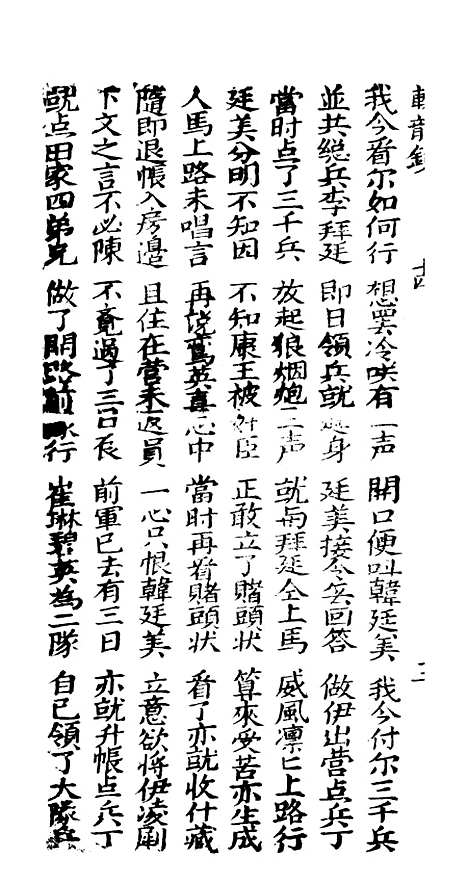 十四
我今看尔如何行　想罢冷咲有一声　開口便叫韓廷美　我今付尔三千兵
並共総兵李拜廷　即日領兵就起身　廷美接令去回答　做伊出营点兵丁
當时点了三千兵　放起狼烟炮三声　就与拜廷仝上馬　威風凛匕上路行
廷美分明不知因　不知康王被奸臣　正敢立了賭頭状　算來受苦亦生成
人馬上路未唱言　再说 英真心中　當时再看賭頭状　看了亦就收什藏
隨即退帳入房邉　且住在营未返員　一心只恨韓廷美　立意欲将伊凌剐
下文之言不必陳　不竟過了三日 　前軍已去有三日　亦就升帳点兵丁
就点田家四弟兄　做了開路前 行　崔琳碧英為二隊　自已領了大隊兵